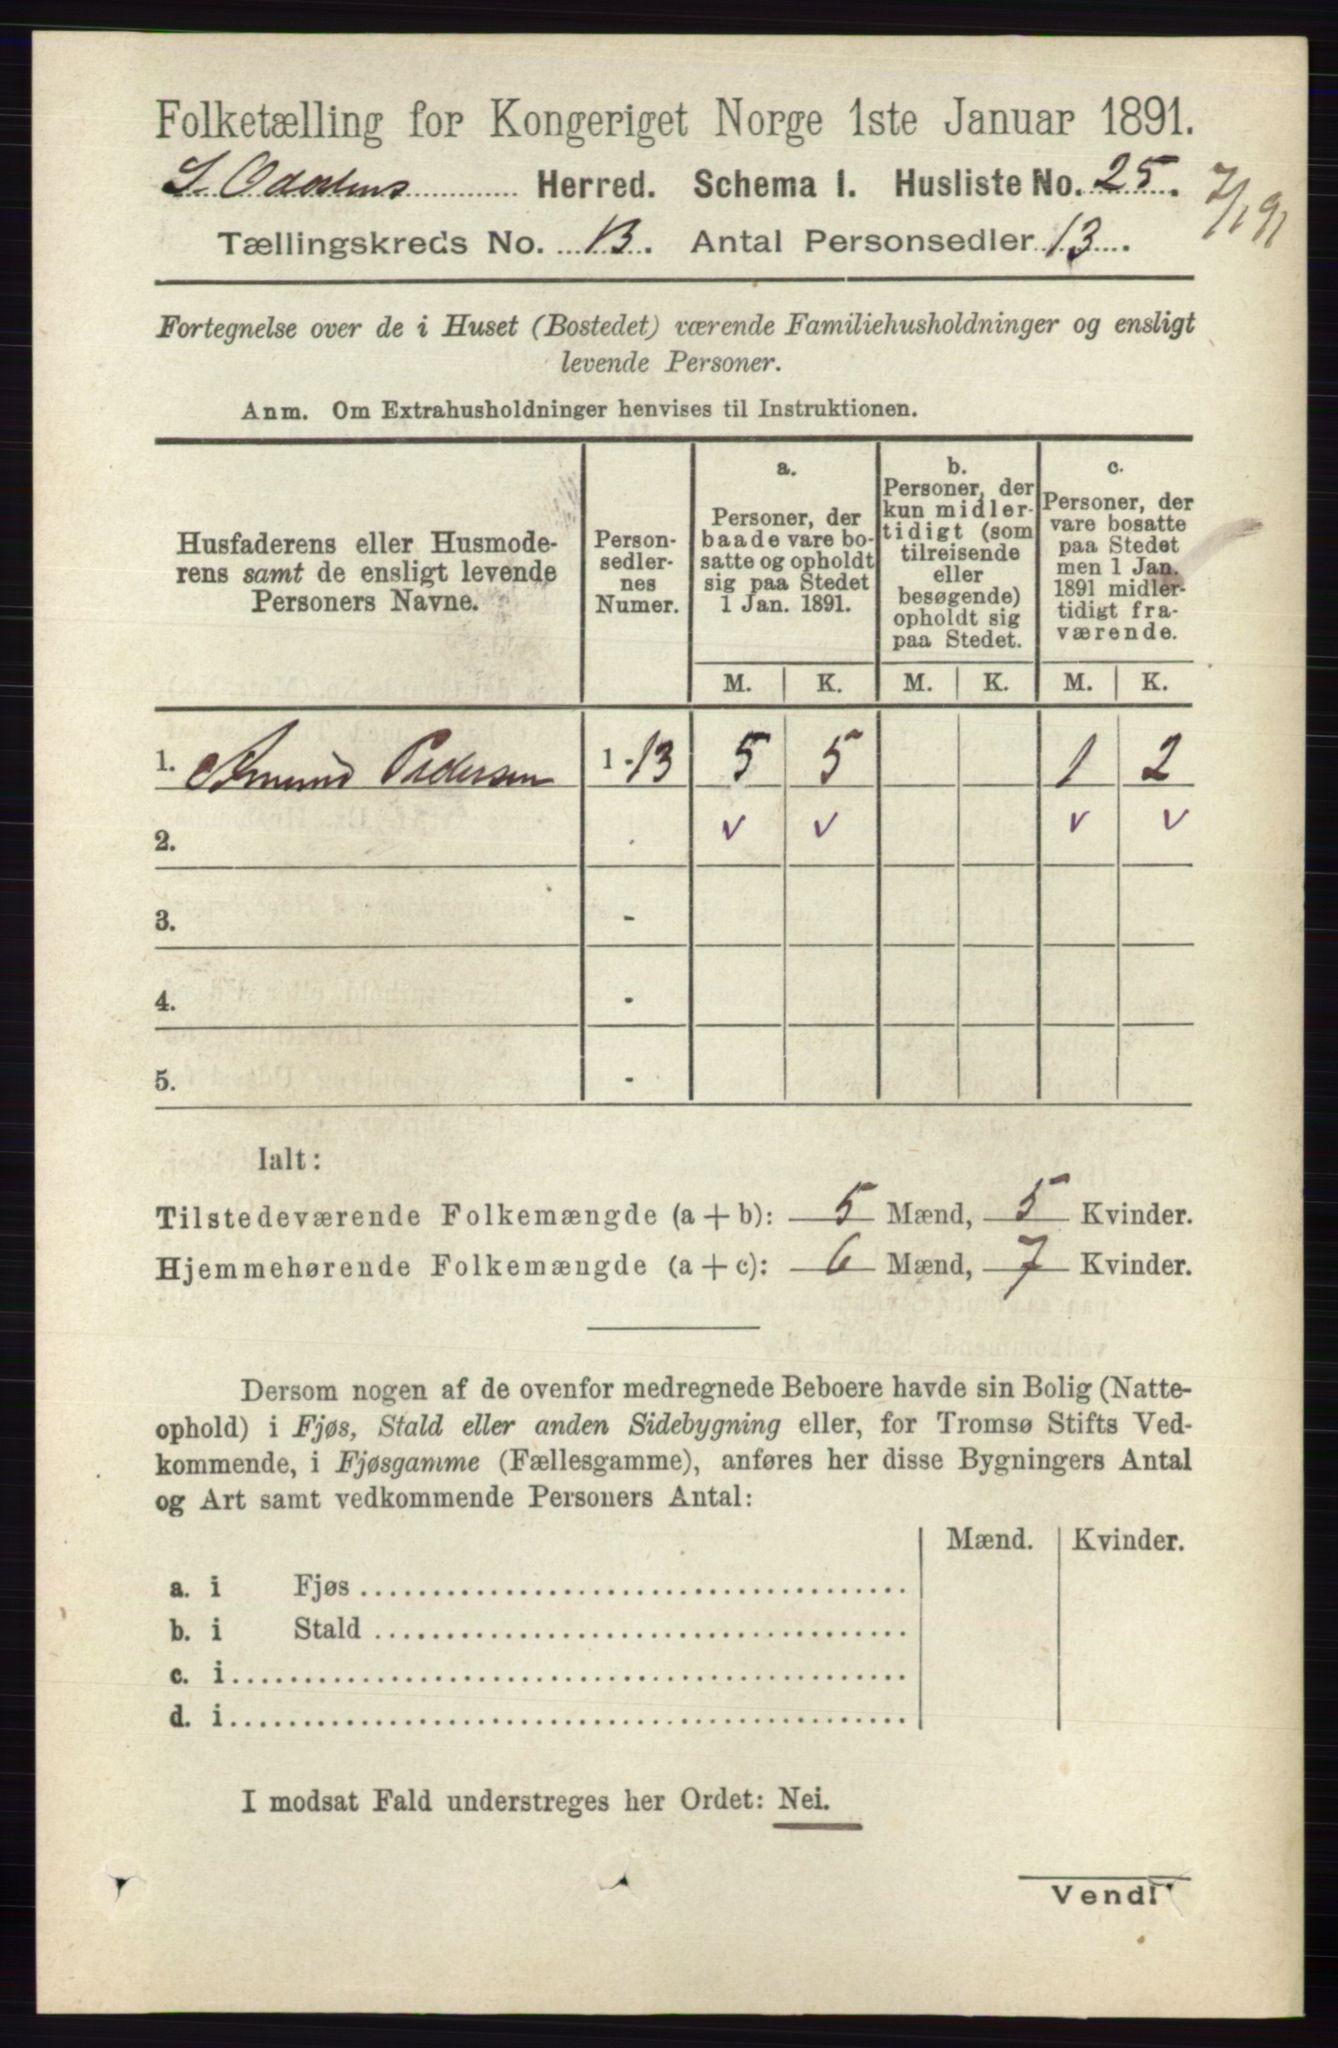 Folketælling for Kongeriget Norge 1ste Januar 1891.
S. Odalens Herred. Schema 1. Husliste No. 25.
7/1 91
Tællingskreds No. 13. Antal Personsedler 13.
Fortegnelse over de i Huset (Bostedet) værende Familiehusholdninger og ensligt
levende Personer.
Anm. Om Extrahusholdninger henvises til Instruktionen.
Husfaderens eller Husmode-
rens samt de ensligt levende
Personers Navne.
Person-
sedler-
nes
Numer.
a.
Personer, der
baade vare bo-
satte og opholdt
sig paa Stedet
1 Jan. 1891.
b.
Personer, der
kun midler-
tidigt (som
tilreisende
eller
besøgende)
opholdt sig
paa Stedet.
c.
Personer, der
vare bosatte
paa Stedet
men 1 Jan.
1891 midler-
tidigt fra-
værende.
M. K. M. K. M. K.
1. Amund Pedersen 1-13 5 5 1 2
2. v v v v
3. -
4. -
5. -
Ialt:
Tilstedeværende Folkemængde (a + b): 5 Mænd, 5 Kvinder.
Hjemmehørende Folkemængde (a + c): 6 Mænd, 7 Kvinder.
Dersom nogen af de ovenfor medregnede Beboere havde sin Bolig (Natte-
ophold) i Fjøs, Stald eller anden Sidebygning eller, for Tromsø Stifts Ved-
kommende, i Fjøsgamme (Fællesgamme), anføres her disse Bygningers Antal
og Art samt vedkommende Personers Antal:
Mænd. Kvinder.
a. i Fjøs
b. i Stald
c. i
d. i
I modsat Fald understreges her Ordet: Nei.
Vend!